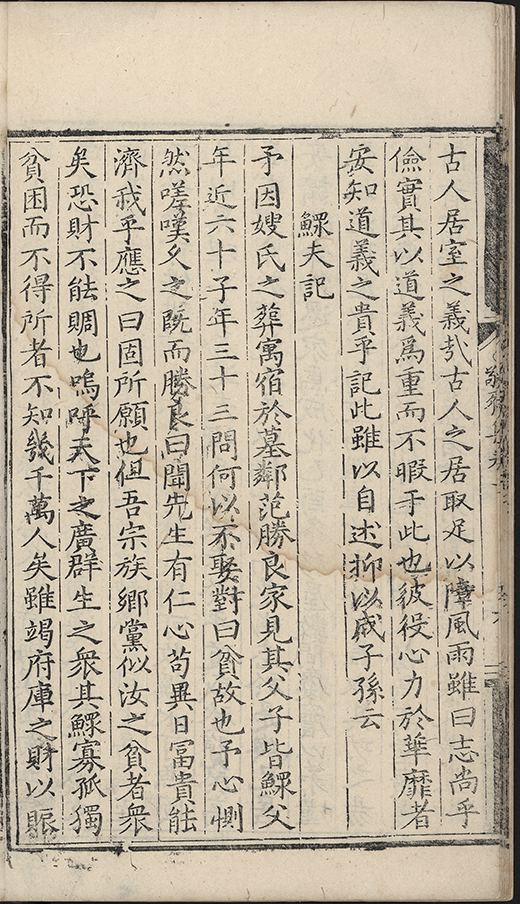 古人居室之義㢤古人之居取足以障風雨雖曰志尚乎
儉實其以道義爲重而不暇于此也彼役心力於華靡者
安知道義之貴乎記此雖以自述抑以戒子孫云
鰥夫記
予因嫂氏之葬寓宿於墓鄰范勝良家見其父子皆鰥父
年近六十子年三十三問何以不娶對曰貧故也予心惻
然嗟嘆久之既而勝良曰聞先生有仁心苟異日冨貴能
濟我乎應之曰固所願也但吾宗族鄉黨似汝之貧者衆
矣恐財不能賙也嗚呼天下之廣群生之衆其鰥寡孤獨
貧困而不得所者不知幾千萬人矣雖竭府庫之財以賑